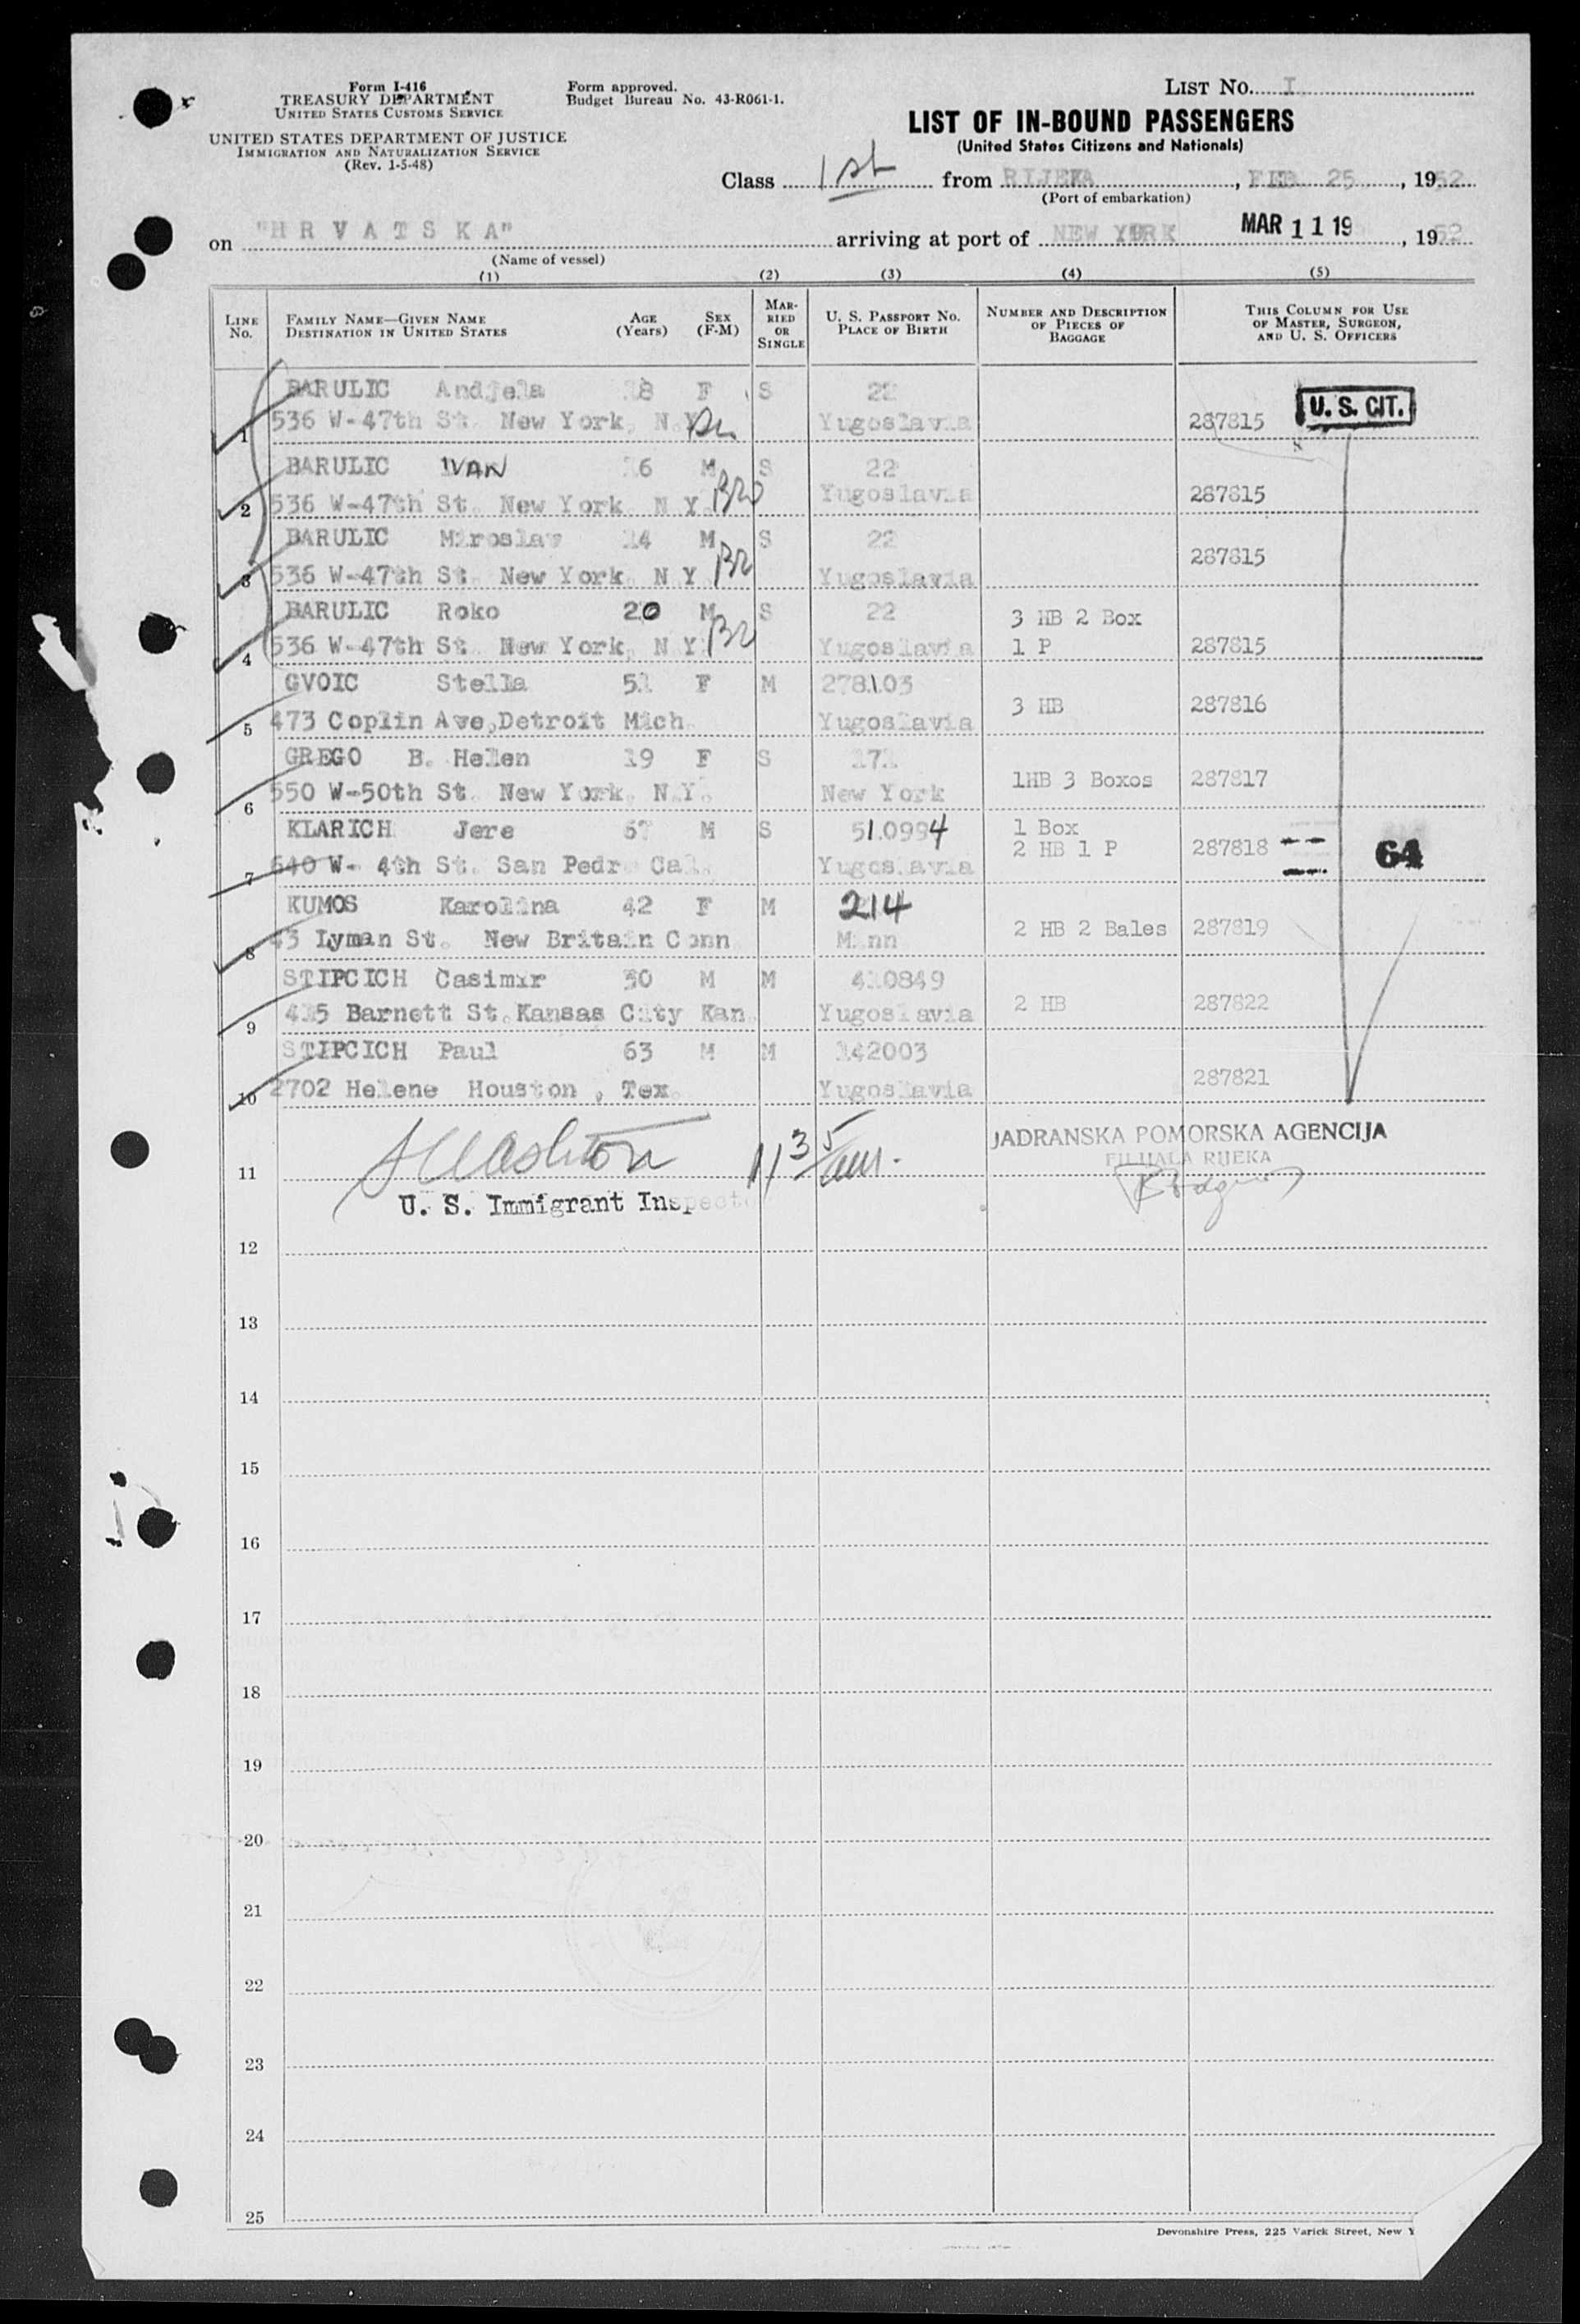 Form I-416
TREASURY DEPARTMENT
UNITED STATES CUSTOMS SERVICE
UNITED STATES DEPARTMENT OF JUSTICE
IMMIGRATION AND NATURALIZATION SERVICE
(Rev. 1-5-48)
Form approved.
Budget Bureau No. 43-R061-1.
LIST NO. I
LIST OF IN-BOUND PASSENGERS
(United States Citizens and Nationals)
Class 1st from RIJEKA, FEB. 25, 1952
(Port of embarkation)
on "HRVATSKA" arriving at port of NEW YORK MAR 11 19, 1952
(Name of vessel)
(1) (2) (3) (4) (5)
LINE NO. FAMILY NAME—GIVEN NAME DESTINATION IN UNITED STATES AGE (Years) SEX (F-M) MARRIED OR SINGLE U. S. PASSPORT NO. PLACE OF BIRTH NUMBER AND DESCRIPTION OF PIECES OF BAGGAGE THIS COLUMN FOR USE OF MASTER, SURGEON, AND U. S. OFFICERS
BARULIC Andjela 18 F S 22 U. S. CIT.
1 536 W-47th St. New York, N.Y. Yugoslavia 287815
BARULIC IVAN 16 M S 22
2 536 W-47th St. New York. N Y. Bro Yugoslavia 287815
BARULIC Miroslav 14 M S 22
3 536 W-47th St. New York. N Y. Br Yugoslavia 287815
BARULIC Roko 20 M S 22 3 HB 2 Box
4 536 W-47th St. New York, N Y. Br Yugoslavia 1 P 287815
GVOIC Stella 51 F M 278103
5 473 Coplin Ave,Detroit Mich. Yugoslavia 3 HB 287816
GREGO B. Helen 19 F S 171
6 550 W-50th St. New York. N.Y. New York 1HB 3 Boxos 287817
KLARICH Jere 67 M S 510994 1 Box
7 640 W- 4th St. San Pedro Cal. Yugoslavia 2 HB 1 P 287818 64
KUMOS Karolina 42 F M 214
8 43 Lyman St. New Britain Conn Minn 2 HB 2 Bales 287819
STIPCICH Casimir 30 M M 410849
9 435 Barnett St.Kansas City Kan. Yugoslavia 2 HB 287822
STIPCICH Paul 63 M M 142003
10 2702 Helene Houston , Tex. Yugoslavia 287821
JADRANSKA POMORSKA AGENCIJA
FILIJALA RIJEKA
11
U. S. Immigrant Inspecto
12
13
14
15
16
17
18
19
20
21
22
23
24
25
Devonshire Press, 225 Varick Street, New Y